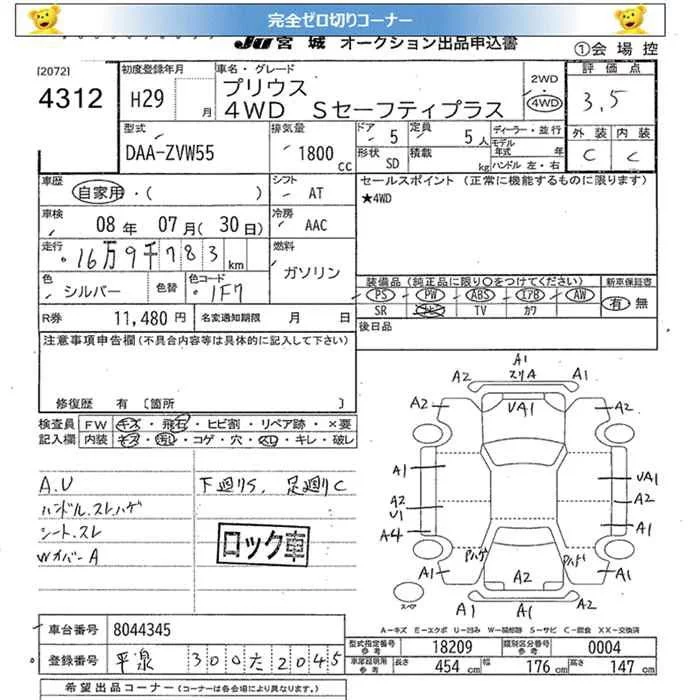 完全ゼロ切りコーナー
JU 宮城 オークション出品申込書
①会場控
[2072]
4312
初度登録年月
H29 月
車名・グレード
プリウス
4WD Sセーフティプラス
2WD
4WD
評価点
3.5
外装 内装
C C
型式
DAA-ZVW55
排気量
1800 CC
ドア 5
定員 5人
形状 SD
積載 kg
ディーラー・並行
モデル年式 年
ハンドル 左・右
車歴
自家用・( )
シフト
AT
セールスポイント (正常に機能するものに限ります)
★4WD
車検
08年 07月(30日)
冷房
AAC
走行
16万9千783km
燃料
ガソリン
色
シルバー
色替
色コード
1F7
装備品 (純正品に限り○をつけてください)
新車保証書
PS PW ABS エアB AW
有 無
SR ナビ TV カワ
R券 11,480円
名変通知期限 月 日
後日品
注意事項申告欄(不具合内容等は具体的に記入して下さい)
修復歴 有 〔箇所 〕
検査員 FW キズ・飛石・ヒビ割・リペア跡・×要
記入欄 内装 キズ・汚レ・コゲ・穴・スレ・キレ・破レ
A.U 下廻りS, 足廻りC
ハンドル.スレハゲ
シート.スレ
Wカバー A
ロック車
A1
スリA
A2 A1
A2 VA1 A2
A1 VA1
A2 A2
U1
A4 A1
Pハゲ Pハゲ
A1 A2 A1
スペア
A1 A1 A1
A－キズ E－エクボ U－凹み W－補修跡 S－サビ C－腐食 XX－交換済
車台番号 8044345
登録番号 平泉 300 た 2045
型式指定番号 参考 18209 類別区分番号 参考 0004
車庫証明用 参考 長さ 454 cm 幅 176 cm 高さ 147 cm
希望出品コーナー (コーナーは各会場により異なります。)